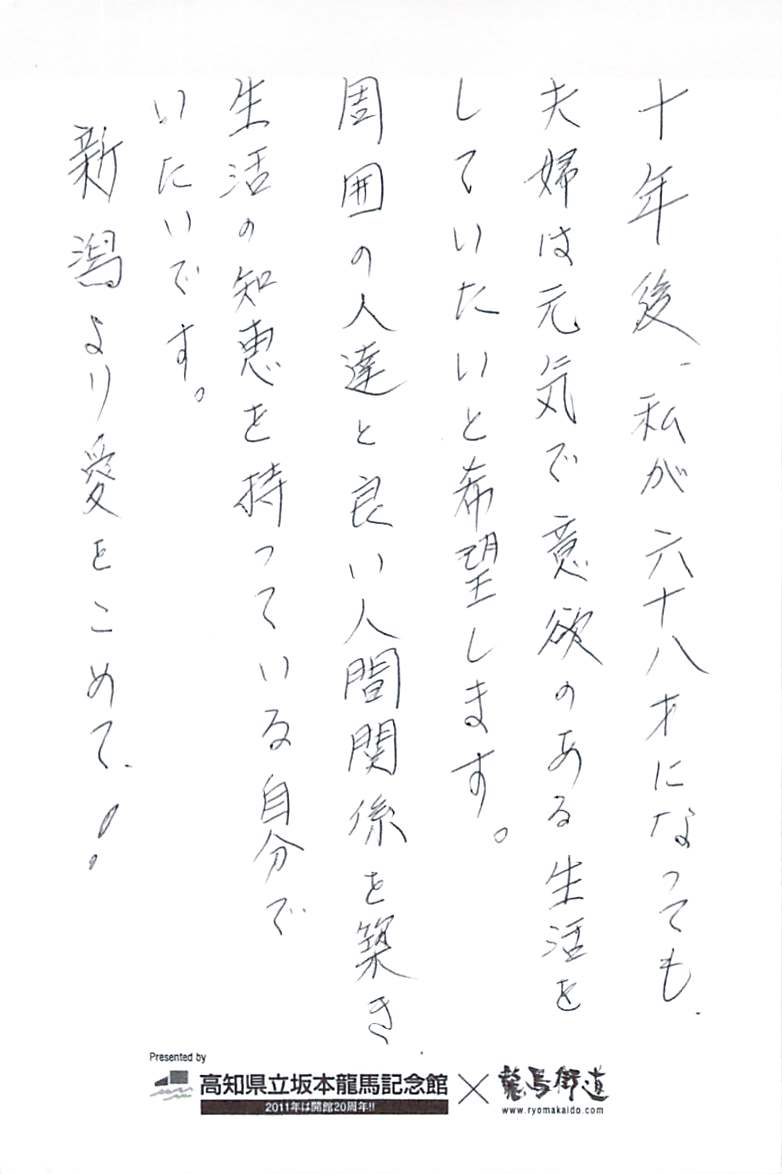 十年後、私が六十八才になっても、
夫婦は元気で意欲のある生活を
していたいと希望します。
周囲の人達と良い人間関係を築き
生活の知恵を持っている自分で
いたいです。
新潟より愛をこめて、!
Presented by
高知県立坂本龍馬記念館 × 龍馬街道
2011年は開館20周年!!
www.ryomakaido.com